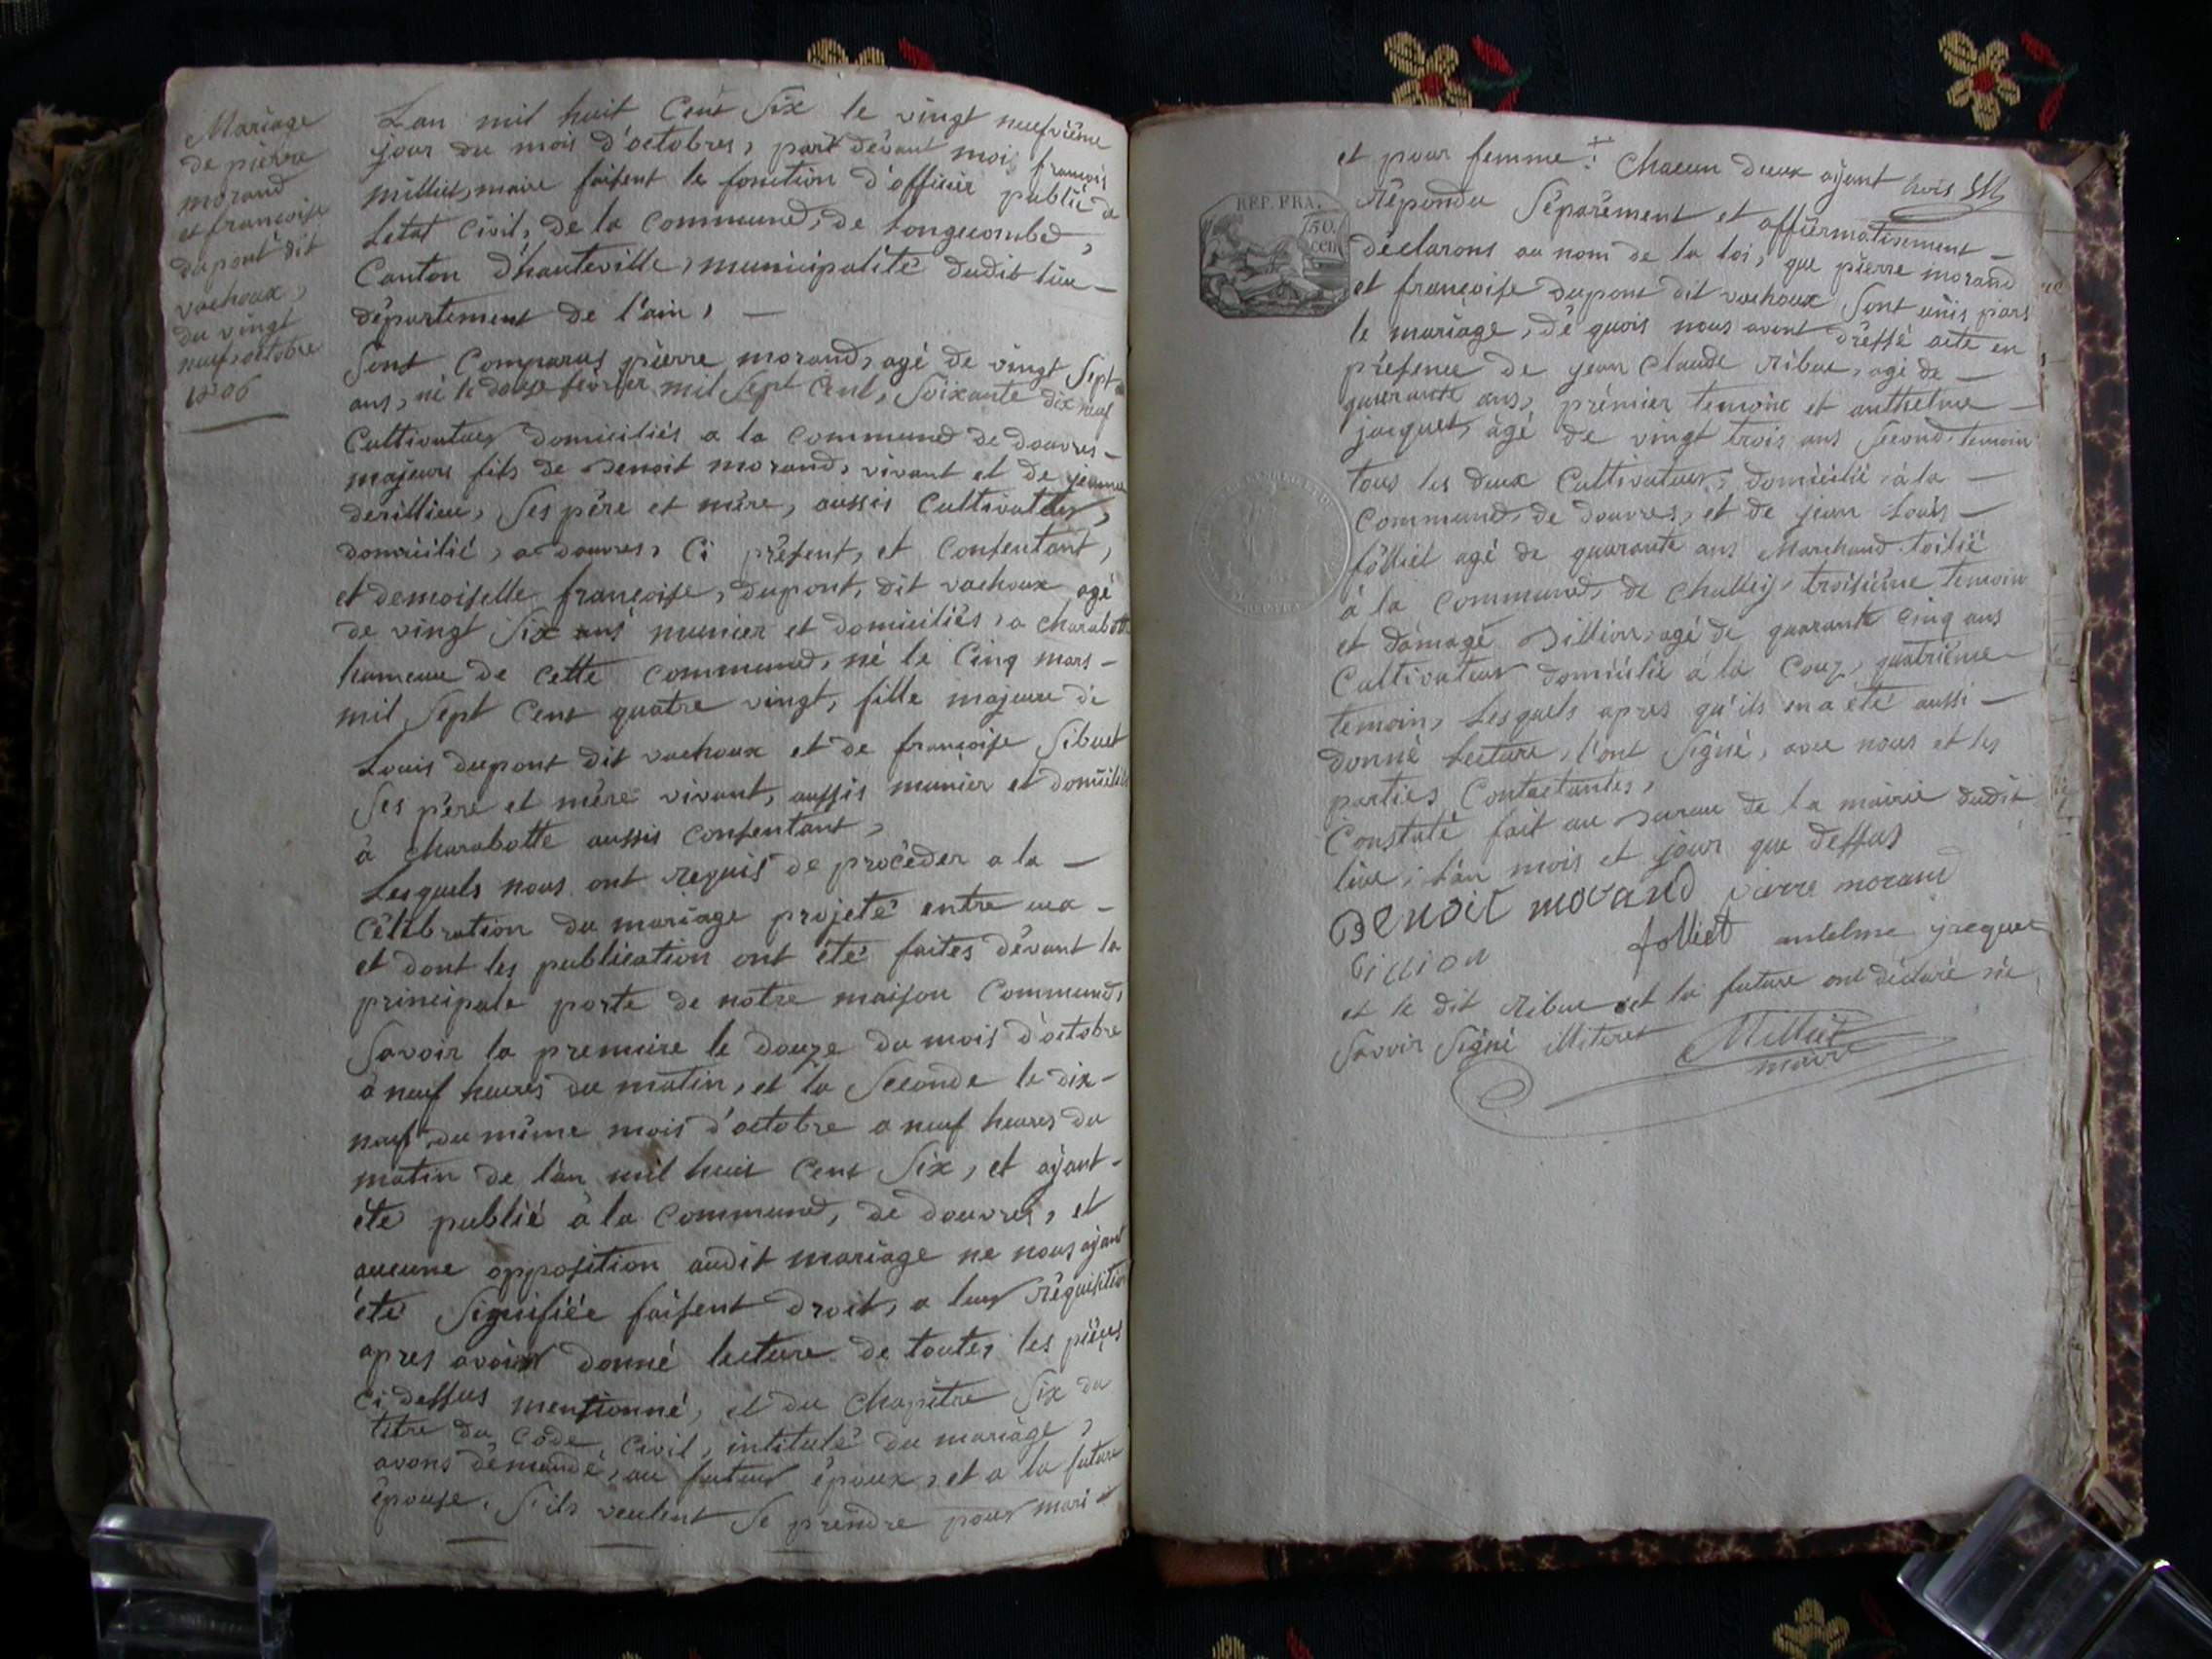 Mariage
de pierre
morand
et françoise
dupont dit
vachoux,
du vingt
neuf octobre
1806
Lan mil huit Cent Six le vingt neufvième
jour du mois d'octobres, part dévant mois françois
milliet, maire faisent le fonction d'officier public de
Letat Civil, de la Commune, de Longecombe,
Canton d'hauteville, municipalité dudit lieu
département de l'ain,
Sont Comparus pierre morand, agé de vingt Sept
ans, né le douze fevrier mil Sept Cent, Soixante dix neuf
Cultivateur domiciliés a la Commune de douvres
majeure fils de Benoit morand, vivant et de jeanne
derillieu, Ses père et mère, aussis Cultivateur,
domicilié, a douvres, Ci présent, et Consentant,
et demoiselle françoise, dupont, dit vachoux agé
de vingt Six ans munier et domiciliés, a charabotte
hameaue de Cette Commune, né le Cinq mars
mil Sept Cent quatre vingt, fille majeure de
Louis dupont dit vachoux et de françoise Sibuet
Ses père et mère vivant, aussis munier et domicilié
à charabotte aussis Consentant,
Lesquels nous ont requis de procèder a la
Célébration du mariage projeté entre eux
et dont les publication ont été faites dévant la
principale porte de notre maison Commune,
Savoir la premiere le douze du mois d'octobre
à neuf heures du matin, et la Seconde le dix
neuf du même mois d'octobre a neuf heures du
matin de l'an mil huit Cent Six, et ayant
été publié à la Commune, de douvres, et
aucune opposition audit mariage ne nous ayant
été Signifiée faisent droit, a leur réquisition
apres avoir donné lecture de toutes les pièces
Ci dessus mentionné, et du Chapitre Six du
titre du Code, Civil, intitulé du mariage,
avons démandé, au futur époux, et a la future
épouse, S'ils veulent Se prendre pour mari
et pour femme: Chacun deux ayant
REP. FRA.
50.
cen
Répondu Séparément et affirmativement
déclarons au nom de la loi, que pierre morand
et françoise dupont dit vachoux Sont unis pars
le mariage, dé quois nous avont dréssé acte en
présence de jean Claude Ribue, agé de
quarante ans, prémier temoix et anthelme
jacquet, âgé de vingt trois ans Second temoin
tous les deux Cultivateur, domicilié, à la
Commune, de douvres, et de jean Louis
folliet agé de quarante ans Marchand toilié
à la Commune, de Challey, troisième temoin
et Domagé Billion, agé de quarante Cinq ans
Cultivateur domicilié à la Couz, quatrième
temoin, Lesquels apres qu'ils en a été aussi
donné lecture, l'ont Signé, avec nous et les
parties Contactantes,
Constaté fait au Bureau de la mairie dudit
lieu, l'an mois et jour que dessus
Benoit morand pierre morand
folliet antelme jacquet
Billion
et le dit Ribue et la future ont déclaré ne
Savoir Signé Milliet
maire